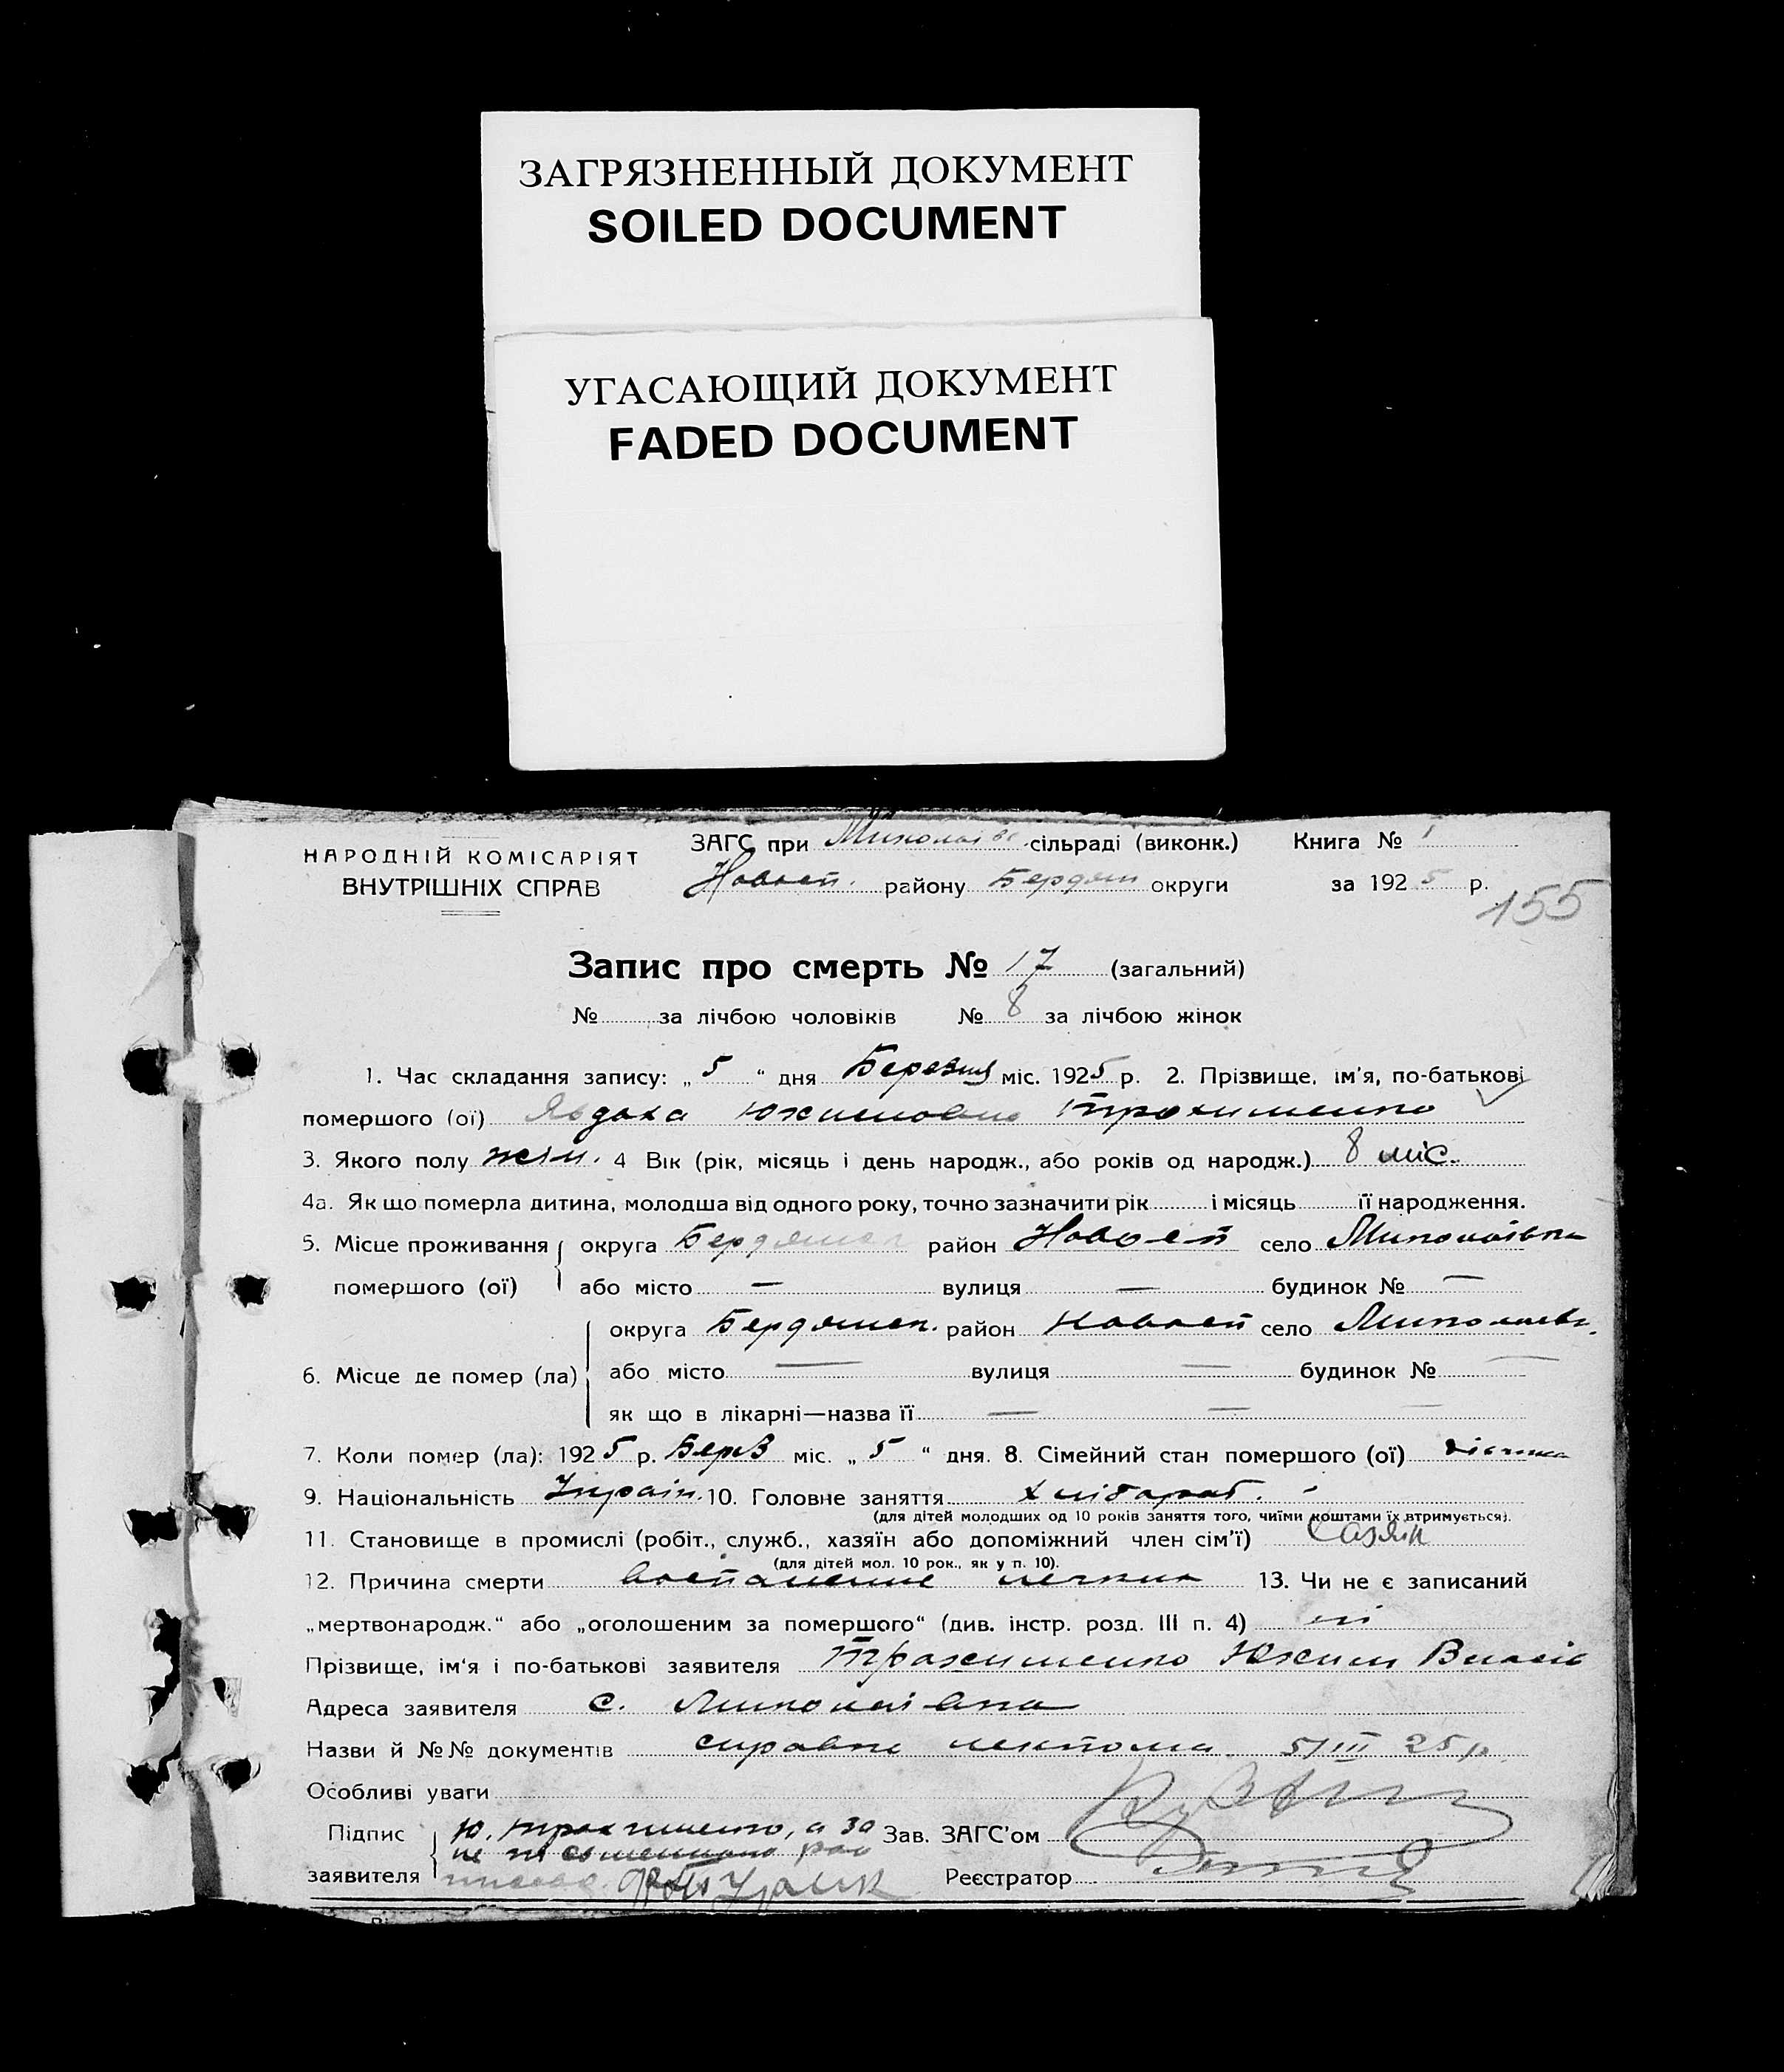 ЗАГРЯЗНЕННЫЙ ДОКУМЕНТ
SOILED DOCUMENT
УГАСАЮЩИЙ ДОКУМЕНТ
FADED DOCUMENT
НАРОДНІЙ КОМІСАРІЯТ
ВНУТРІШНІХ СПРАВ
ЗАГС при Миколаївс. сільраді (виконк.) Книга № 1
району Бердян округи за 1925 р.
155
Запис про смерть № 17 (загальний)
№ за лічбою чоловіків № 8 за лічбою жінок
1. Час складання запису: „5“ дня Березня міс. 1925 р. 2. Прізвище, ім'я, по-батькові
помершого (ої) Явдоха Юхимовна Трохименко
3. Якого полу жін. 4 Вік (рік, місяць і день народж., або років од народж.) 8 міс.
4а. Як що померла дитина, молодша від одного року, точно зазначити рік і місяць її народження.
5. Місце проживання помершого (ої) округа Бердянск район село Миколаївка
або місто — вулиця — будинок № —
6. Місце де помер (ла) округа Бердянск. район село Миколаєвк.
або місто — вулиця — будинок № —
як що в лікарні—назва її — — —
7. Коли помер (ла): 1925 р. Берез міс. „5“ дня. 8. Сімейний стан помершого (ої)
9. Національність Украін. 10. Головне заняття хлібороб.
(для дітей молодших од 10 років заняття того, чиїми коштами їх втримується).
11. Становище в промислі (робіт., служб., хазяїн або допоміжний член сім'ї) хазяїн
(для дітей мол. 10 рок., як у п. 10).
12. Причина смерти воспаление легких 13. Чи не є записаний
„мертвонародж.“ або „оголошеним за помершого“ (див. інстр. розд. III п. 4) ні
Прізвище, ім'я і по-батькові заявителя Трохименко Юхим Власів
Адреса заявителя с. Миколаівка
Назви й №№ документів справка лекпома 5/III 25 р.
Особливі уваги
Підпис заявителя Ю. Трохименко, а за
не письменного
Зав. ЗАГС'ом
Реєстратор